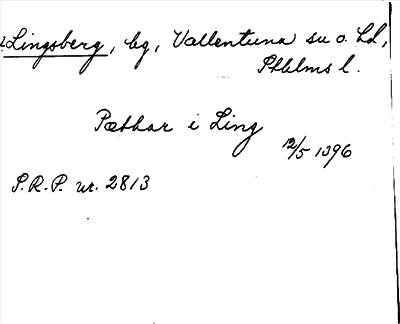 Lingsberg, bg, Vallentuna sn o. hd,
Sthlms l.
Pæthar i Ling
12/5 1396
S.R.P. nr. 2813